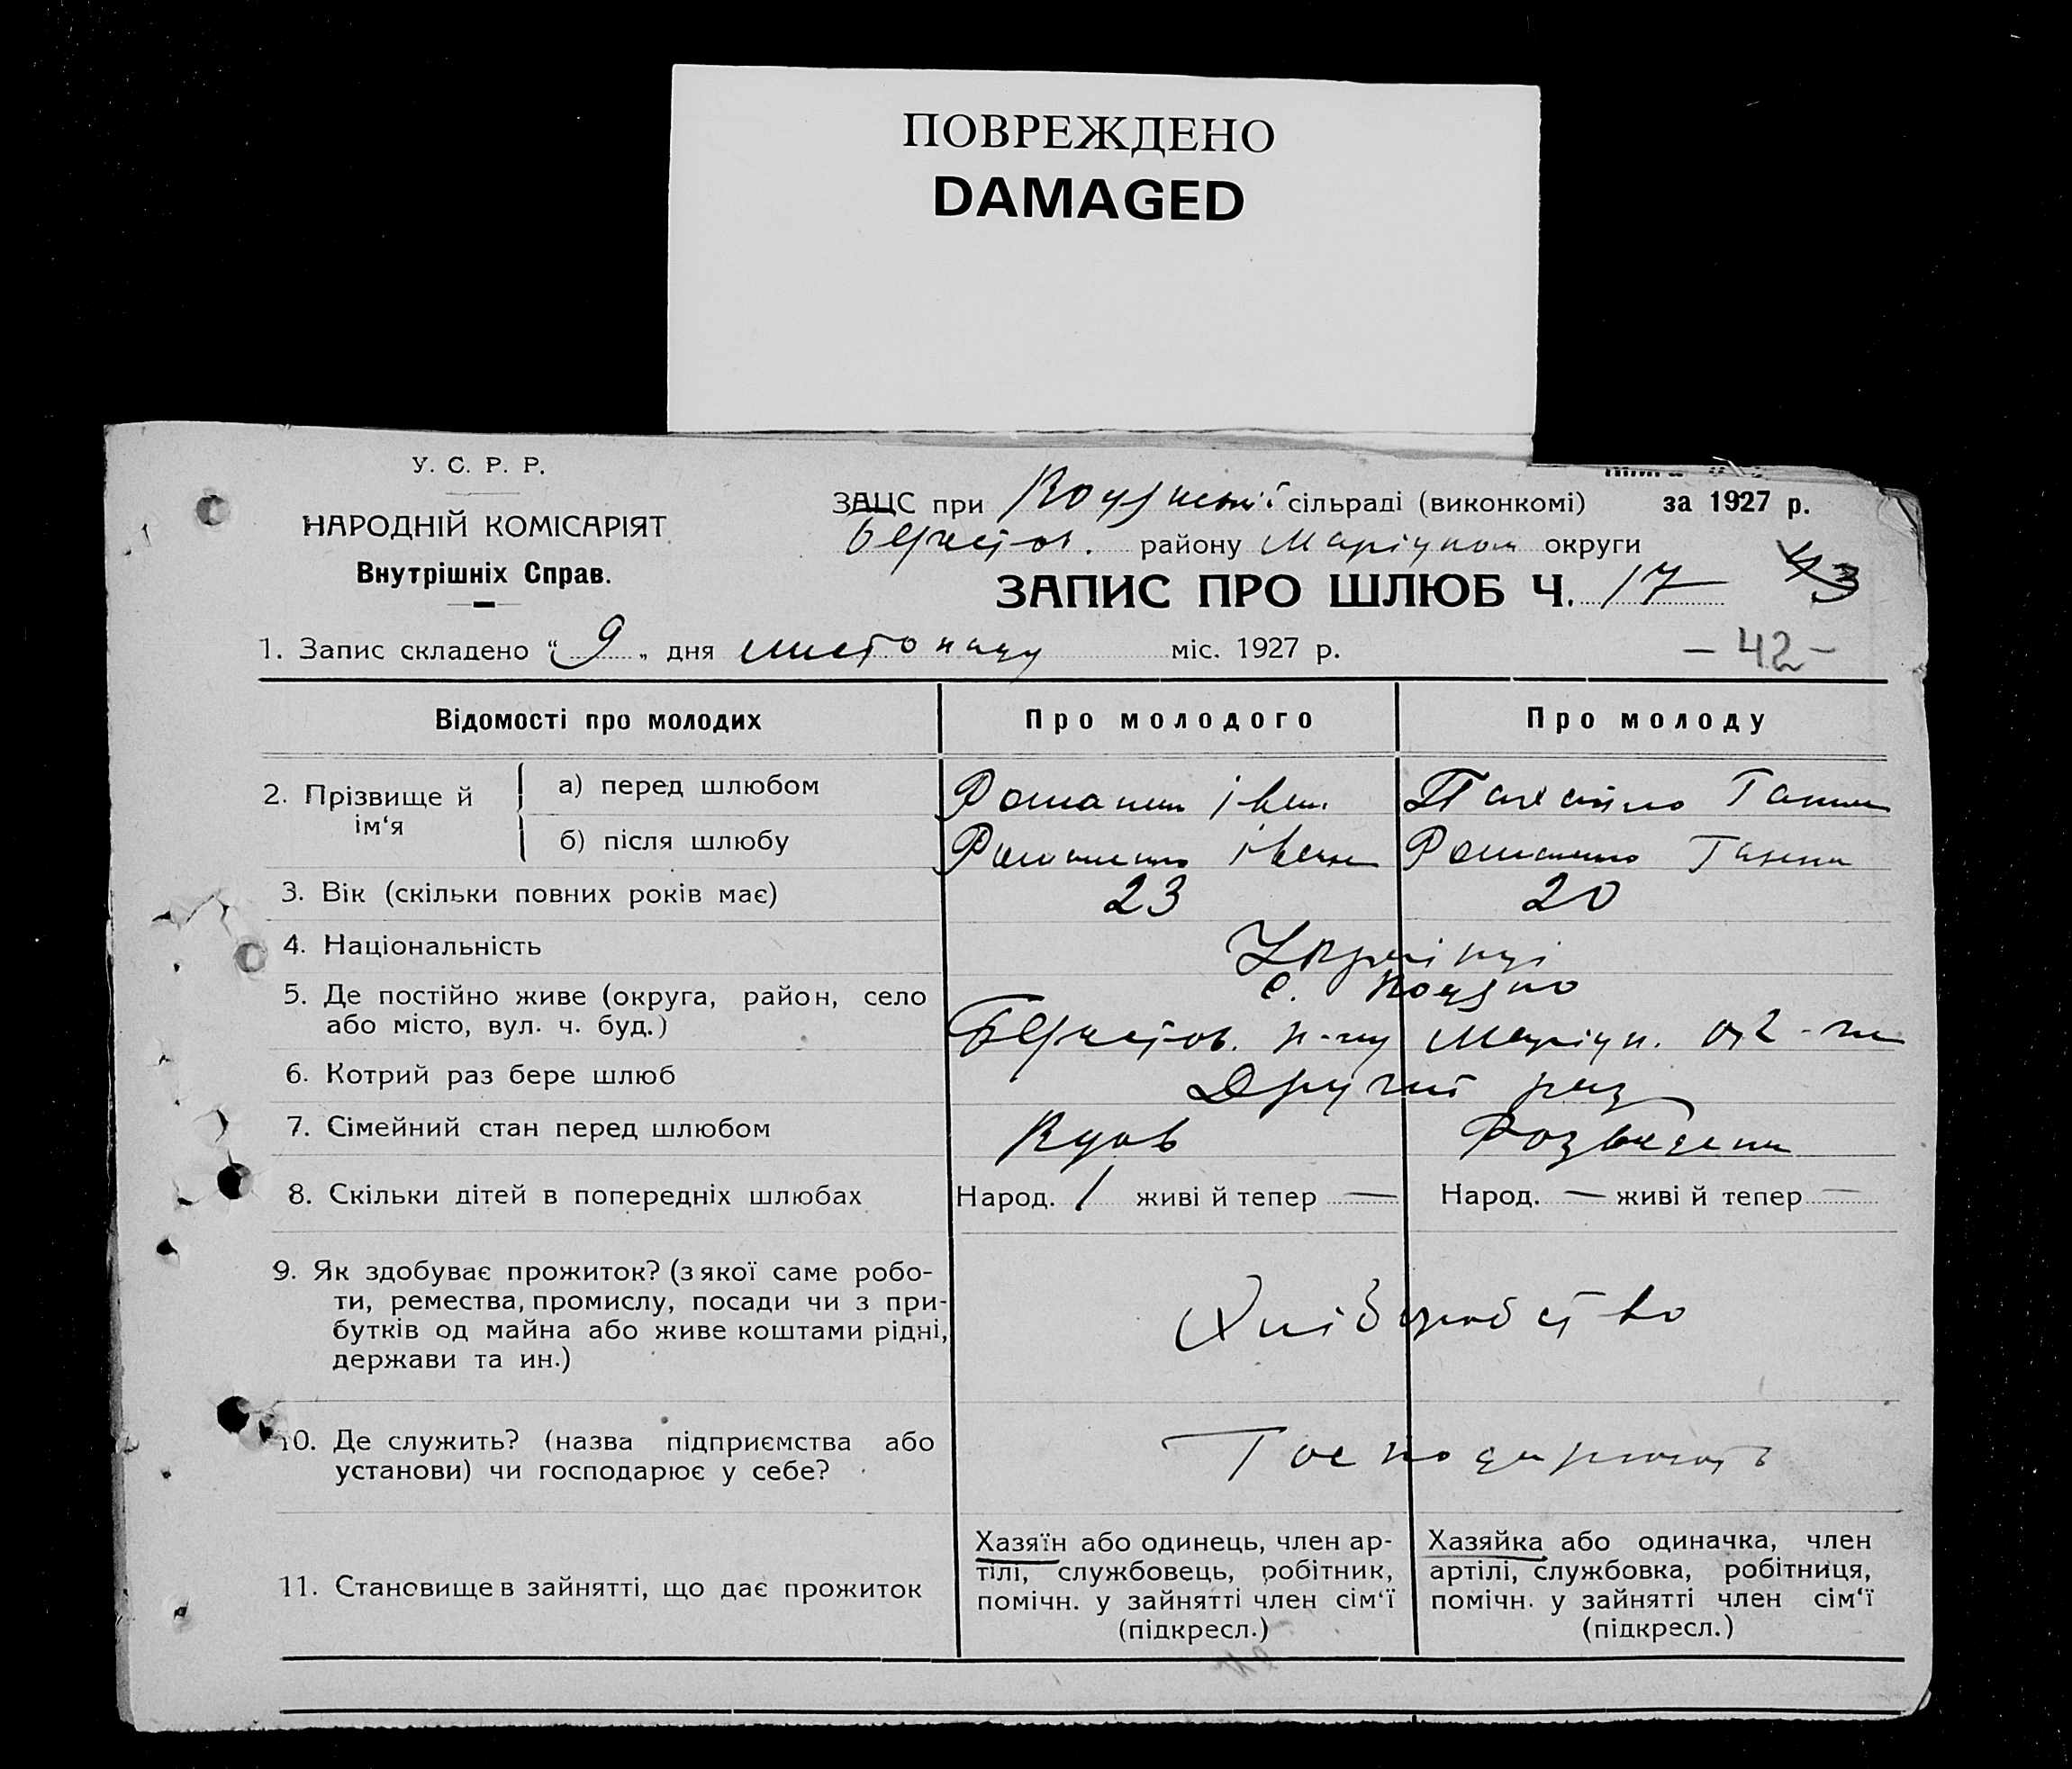 ПОВРЕЖДЕНО
DAMAGED
У. С. Р. Р.
НАРОДНІЙ КОМІСАРІЯТ
Внутрішніх Справ.
ЗАЦС при сільраді (виконкомі) за 1927 р.
Берестов. району Маріупол округи
ЗАПИС ПРО ШЛЮБ Ч. 17
43
1. Запис складено “ 9 „ дня листопаду міс. 1927 р.
- 42 -
Відомості про молодих Про молодого Про молоду
2. Прізвище й ім‘я
а) перед шлюбом Іван Ганна
б) після шлюбу Романенко Іван Романенко Ганна
3. Вік (скільки повних років має) 23 20
4. Національність Українці
5. Де постійно живе (округа, район, село с.
або місто, вул. ч. буд.) Берестов. р-ну Маріуп. окр-ги
6. Котрий раз бере шлюб Другий раз
7. Сімейний стан перед шлюбом Вдов Розведена
8. Скільки дітей в попередніх шлюбах Народ. 1 живі й тепер — Народ. — живі й тепер —
9. Як здобуває прожиток? (з якої саме робо-
ти, ремества, промислу, посади чи з при-
бутків од майна або живе коштами рідні,
держави та ин.)
Хліборобство
10. Де служить? (назва підприємства або
установи) чи господарює у себе?
Господарюють
11. Становище в зайнятті, що дає прожиток
Хазяїн або одинець, член ар-
тілі, службовець, робітник,
помічн. у зайнятті член сім‘ї
(підкресл.)
Хазяйка або одиначка, член
артілі, службовка, робітниця,
помічн. у зайнятті член сім‘ї
(підкресл.)